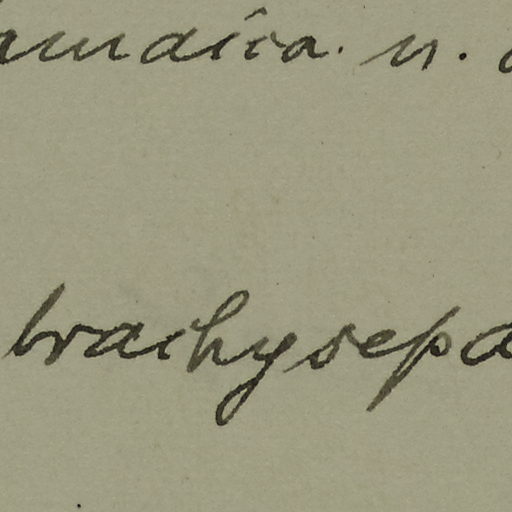 amaica. n.
brachysepa